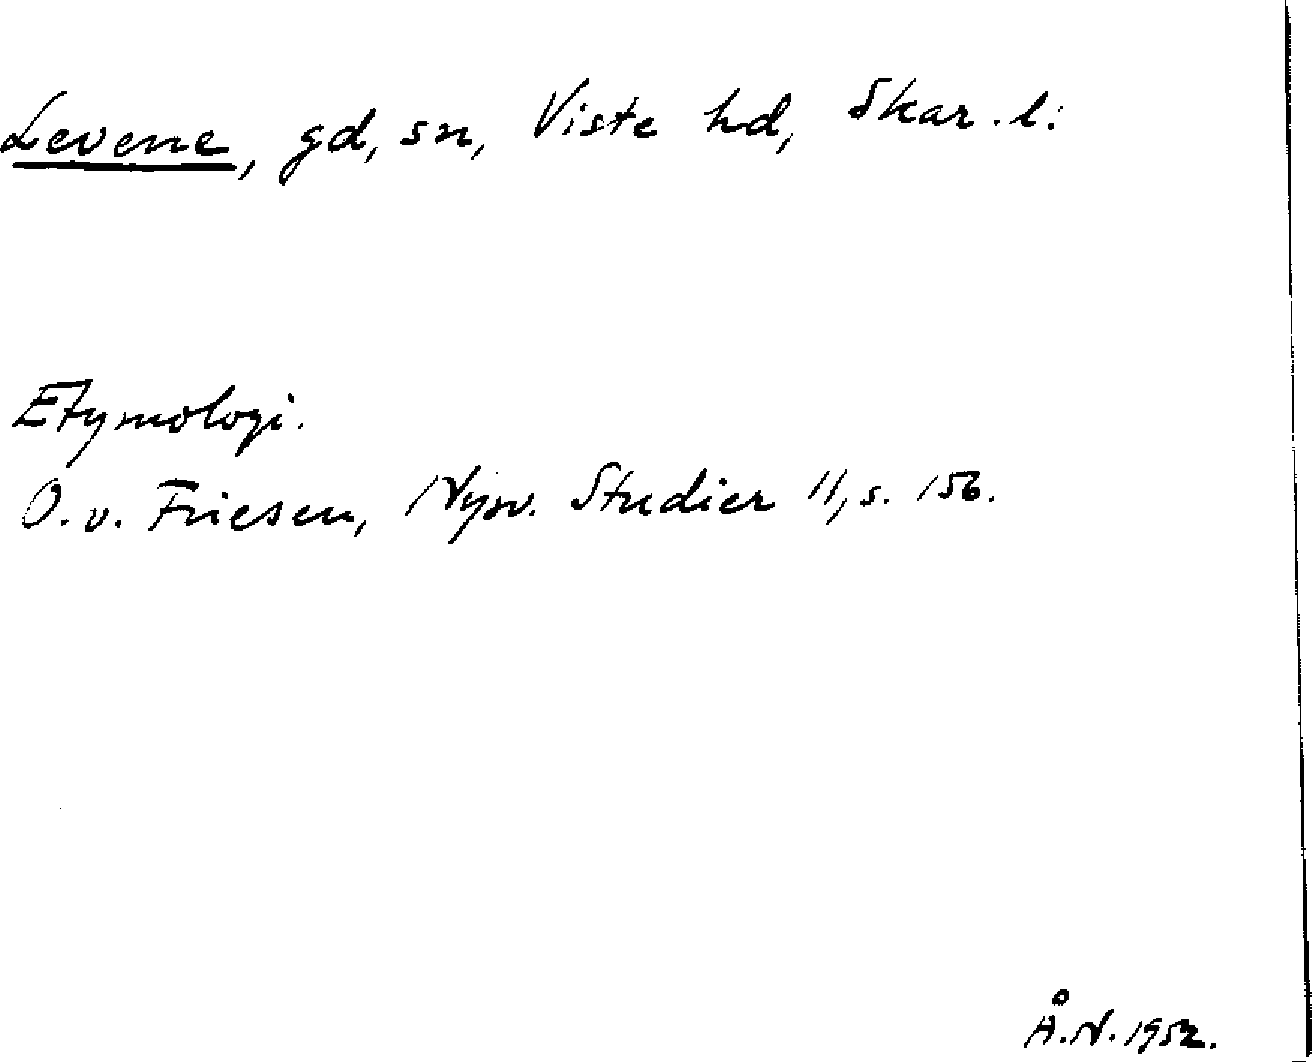 Levene, gd, sn, Viste hd, Skar. l.
Etymologi.
O. v. Friesen, Nysv. Studier 11, s. 156.
Å. N. 1952.